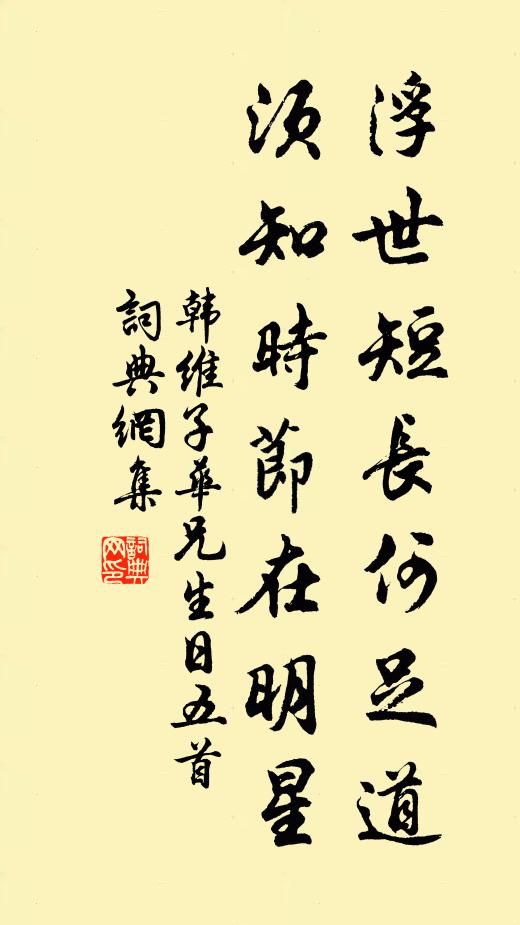 浮世短長何足道
須知時節在明星
韩維子華兄生日五首
詞典網集
詞典网印